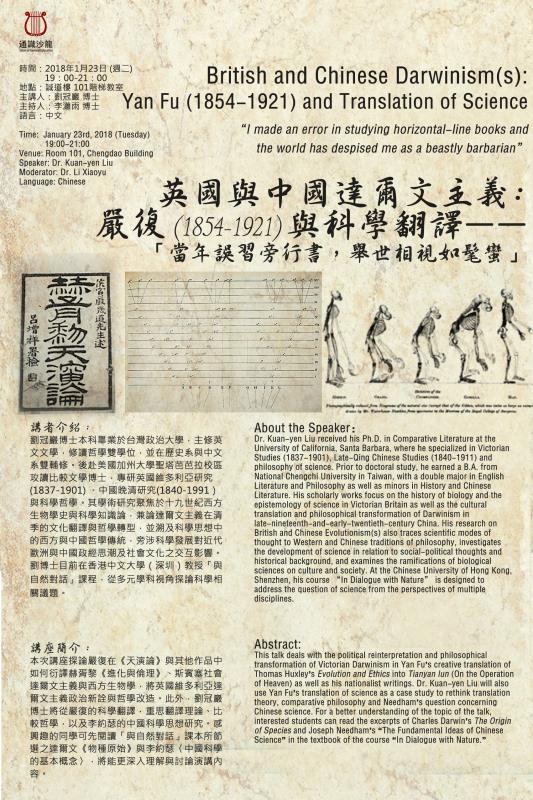 通識沙龍
時間：2018年1月23日 (週二)
19：00-21：00
地點：誠道樓 101階梯教室
主講人：劉冠巖 博士
主持人：李瀟雨 博士
語言：中文
Time: January 23rd, 2018 (Tuesday)
19:00-21:00
Venue: Room 101, Chengdao Building
Speaker: Dr. Kuan-yen Liu
Moderator: Dr. Li Xiaoyu
Language: Chinese
British and Chinese Darwinism(s):
Yan Fu (1854-1921) and Translation of Science
“I made an error in studying horizontal-line books and
the world has despised me as a beastly barbarian”
英國與中國達爾文主義:
嚴復(1854-1921)與科學翻譯——
「當年誤習旁行書，舉世相視如髦蠻」
侯官嚴幾道先生述
赫胥黎天演論
呂增祥署檢
GIBBON.
ORANG.
Skeletons of the
CHIMPANZEE.
GORILLA.
MAN.
Photographically reduced from Diagrams of the natural size (except that of the Gibbon, which was twice as large as nature)
drawn by Mr. Waterhouse Hawkins from specimens in the Museum of the Royal College of Surgeons.
講者介紹：
劉冠巖博士本科畢業於台灣政治大學，主修英
文文學，修讀哲學雙學位，並在歷史系與中文
系雙輔修，後赴美國加州大學聖塔芭芭拉校區
攻讀比較文學博士，專研英國維多利亞研究
(1837-1901)，中國晚清研究(1840-1991)
與科學哲學。其學術研究聚焦於十九世紀西方
生物學史與科學知識論，兼論達爾文主義在清
季的文化翻譯與哲學轉型，並溯及科學思想中
的西方與中國哲學傳統，旁涉科學發展對近代
歐洲與中國政經思潮及社會文化之交互影響。
劉博士目前在香港中文大學（深圳）教授「與
自然對話」課程，從多元學科視角探論科學相
關議題。
About the Speaker：
Dr. Kuan-yen Liu received his Ph.D. in Comparative Literature at the
University of California, Santa Barbara, where he specialized in Victorian
Studies (1837-1901), Late-Qing Chinese Studies (1840-1911) and
philosophy of science. Prior to doctoral study, he earned a B.A. from
National Chengchi University in Taiwan, with a double major in English
Literature and Philosophy as well as minors in History and Chinese
Literature. His scholarly works focus on the history of biology and the
epistemology of science in Victorian Britain as well as the cultural
translation and philosophical transformation of Darwinism in
late-nineteenth-and-early-twentieth-century China. His research on
British and Chinese Evolutionism(s) also traces scientific modes of
thought to Western and Chinese traditions of philosophy, investigates
the development of science in relation to social-political thoughts and
historical background, and examines the ramifications of biological
sciences on culture and society. At the Chinese University of Hong Kong,
Shenzhen, his course “In Dialogue with Nature” is designed to
address the question of science from the perspectives of multiple
disciplines.
講座簡介：
本次講座探論嚴復在《天演論》與其他作品中
如何衍譯赫胥黎《進化與倫理》、斯賓塞社會
達爾文主義與西方生物學，將英國維多利亞達
爾文主義政治新詮與哲學改造。此外，劉冠巖
博士將從嚴復的科學翻譯，重思翻譯理論、比
較哲學，以及李約瑟的中國科學思想研究。感
興趣的同學可先閱讀「與自然對話」課本所節
選之達爾文《物種原始》與李約瑟〈中國科學
的基本概念〉，將能更深入理解與討論演講內
容。
Abstract:
This talk deals with the political reinterpretation and philosophical
transformation of Victorian Darwinism in Yan Fu's creative translation of
Thomas Huxley's Evolution and Ethics into Tianyan lun (On the Operation
of Heaven) as well as his nationalist writings. Dr. Kuan-yen Liu will also
use Yan Fu's translation of science as a case study to rethink translation
theory, comparative philosophy and Needham's question concerning
Chinese science. For a better understanding of the topic of the talk,
interested students can read the excerpts of Charles Darwin's The Origin
of Species and Joseph Needham's “The Fundamental Ideas of Chinese
Science” in the textbook of the course “In Dialogue with Nature.”